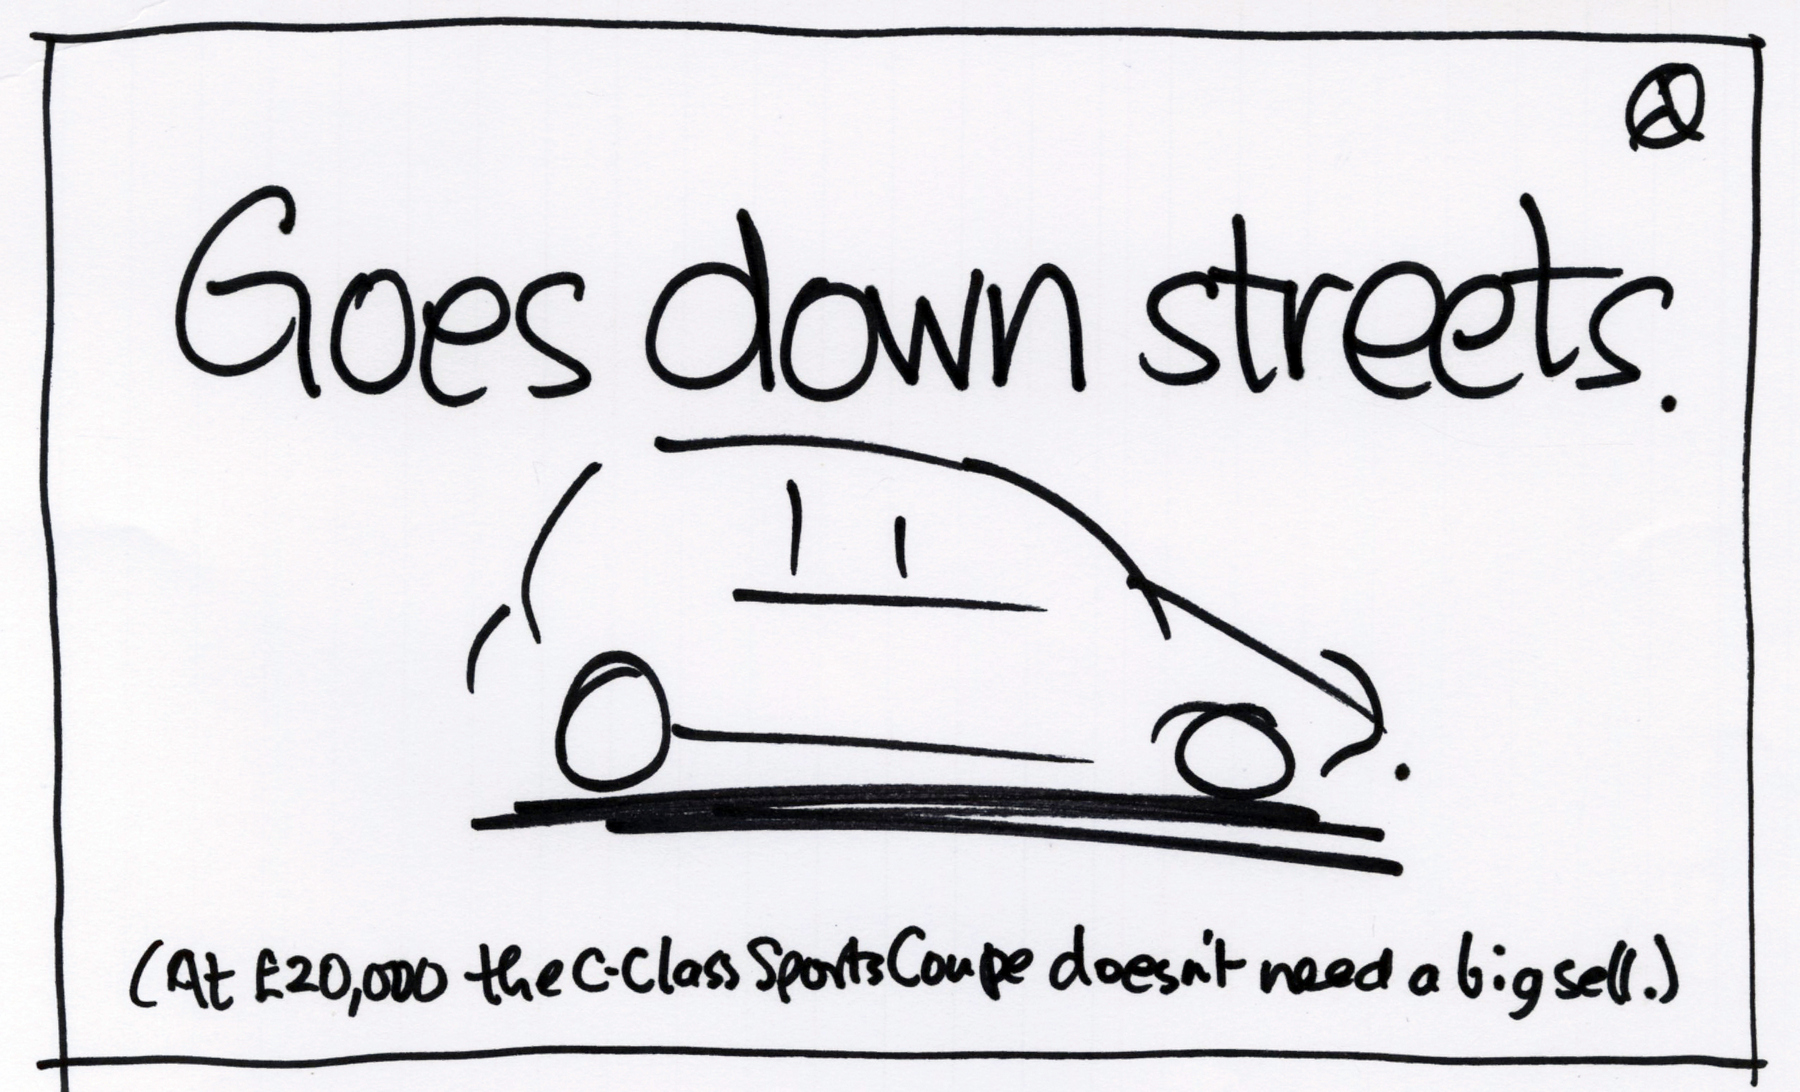 Goes down streets.
(At £20,000 the C-Class Sports Coupe doesn't need a big sell.)